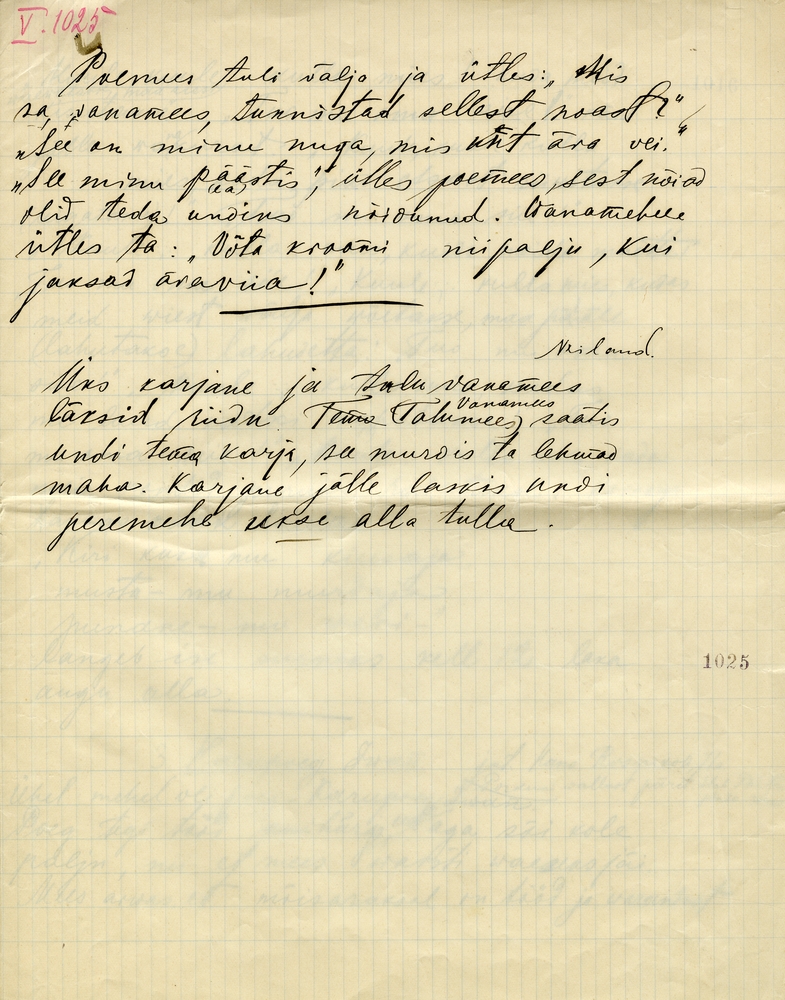 V. 1025
Poemees tuli välja ja ütles: „Mis
sa, vanamees, tunnistad sellest noast?"
„See on minu nuga, mis unt ära vei."
„See minu päästis", ütles poemees, sest nõiad
(ea)
olid teda undiks nõidunud. Vanamehele
ütles ta: „Võta kraami niipalju, kui
jaksad äraviia!"
Üks karjane ja talu vanamees
läksid riidu. Tema (Talumees) saatis
Vanamees
undi tema karja, see murdis ta lehmad
maha. Karjane jälle laskis undi
peremehe ukse alla tulla.
1025